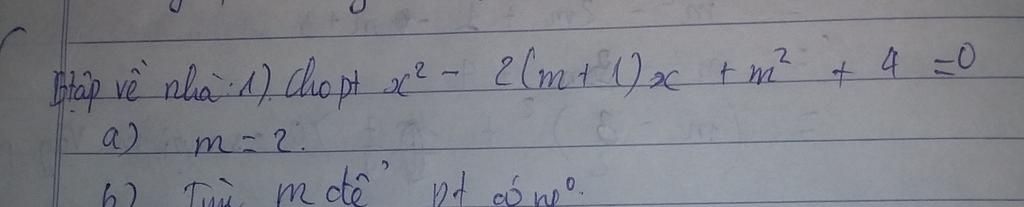 Btập về nhà: 1). Cho pt x² - 2(m+1)x + m² + 4 = 0
a) m = 2.
b) Tìm m để pt có n⁰.